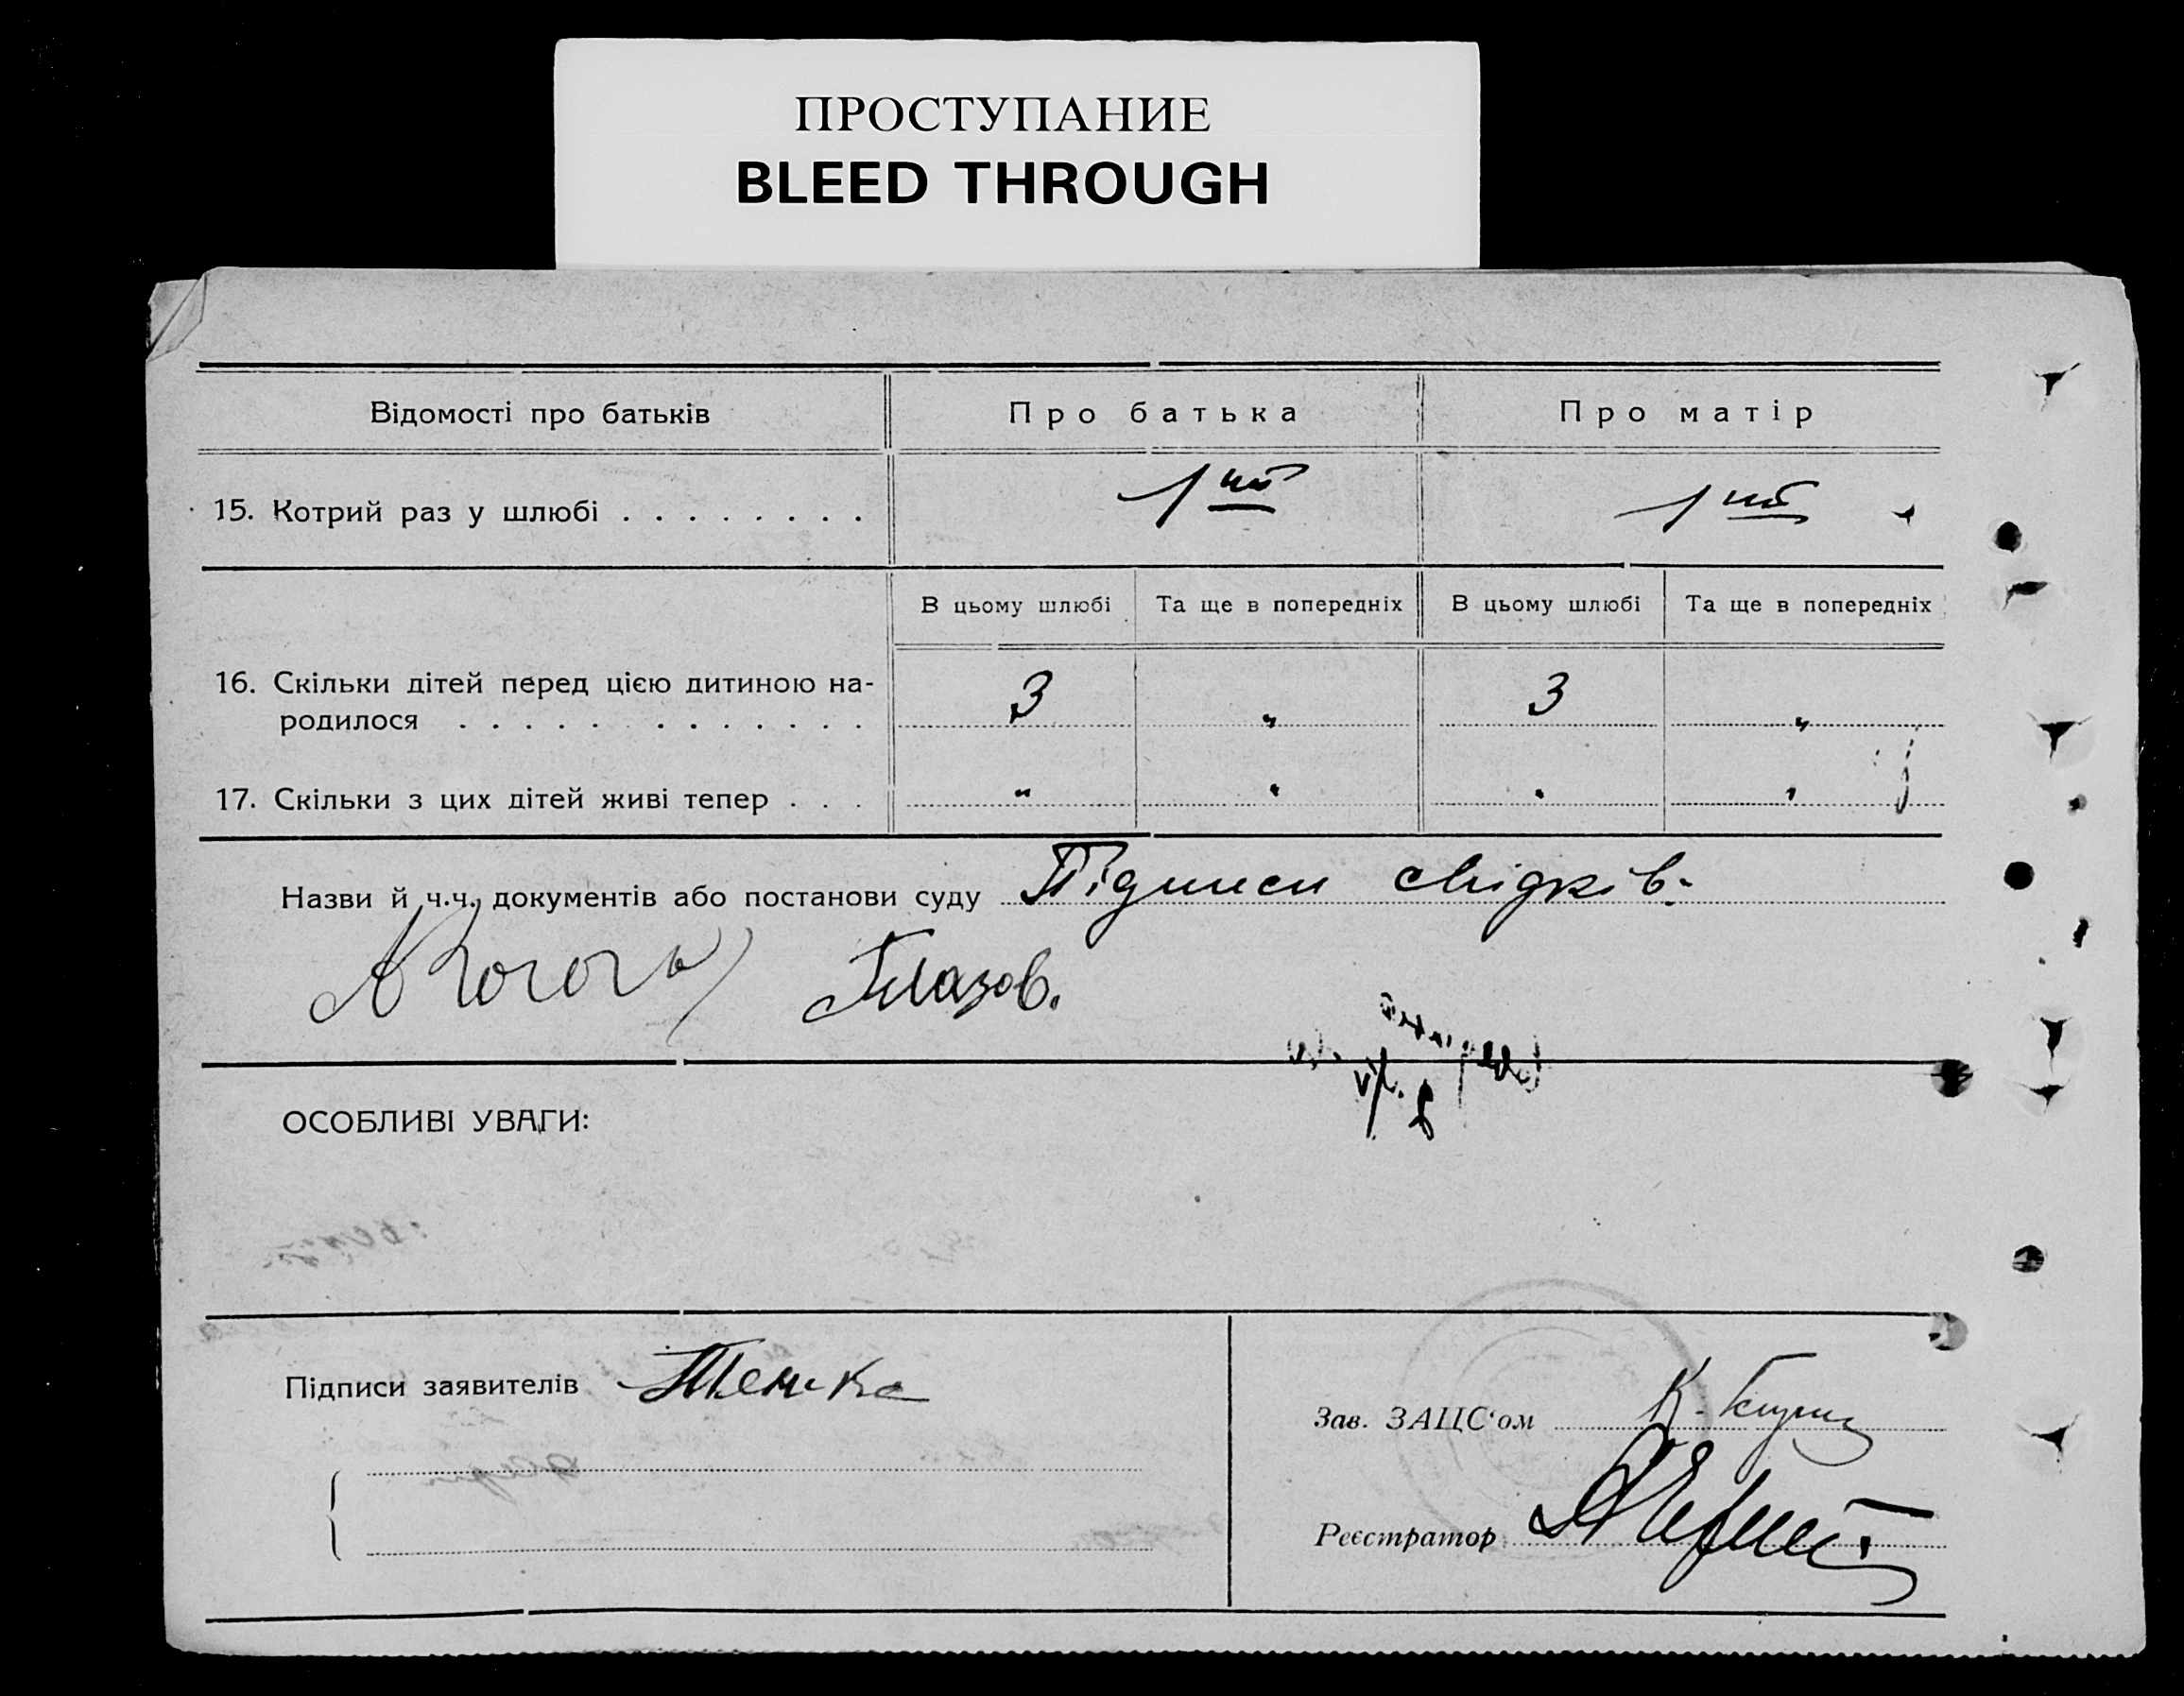 ПРОСТУПАНИЕ
BLEED THROUGH
Відомості про батьків Про батька Про матір
15. Котрий раз у шлюбі . . . . . . . . 1ий 1ий
В цьому шлюбі Та ще в попередніх В цьому шлюбі Та ще в попередніх
16. Скільки дітей перед цією дитиною на-
родилося . . . . . . . . . . . . 3 „ 3 „
17. Скільки з цих дітей живі тепер . . . „ „ „ „
Назви й ч.ч. документів або постанови суду Підписи свідків.
Глазов.
ОСОБЛИВІ УВАГИ:
Підписи заявителів
Зав. ЗАЦС‘ом К.
Реєстратор